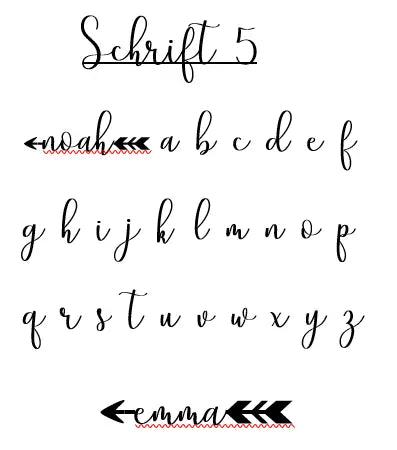 Schrift 5
noah a b c d e f
g h i j k l m n o p
q r s t u v w x y z
emma